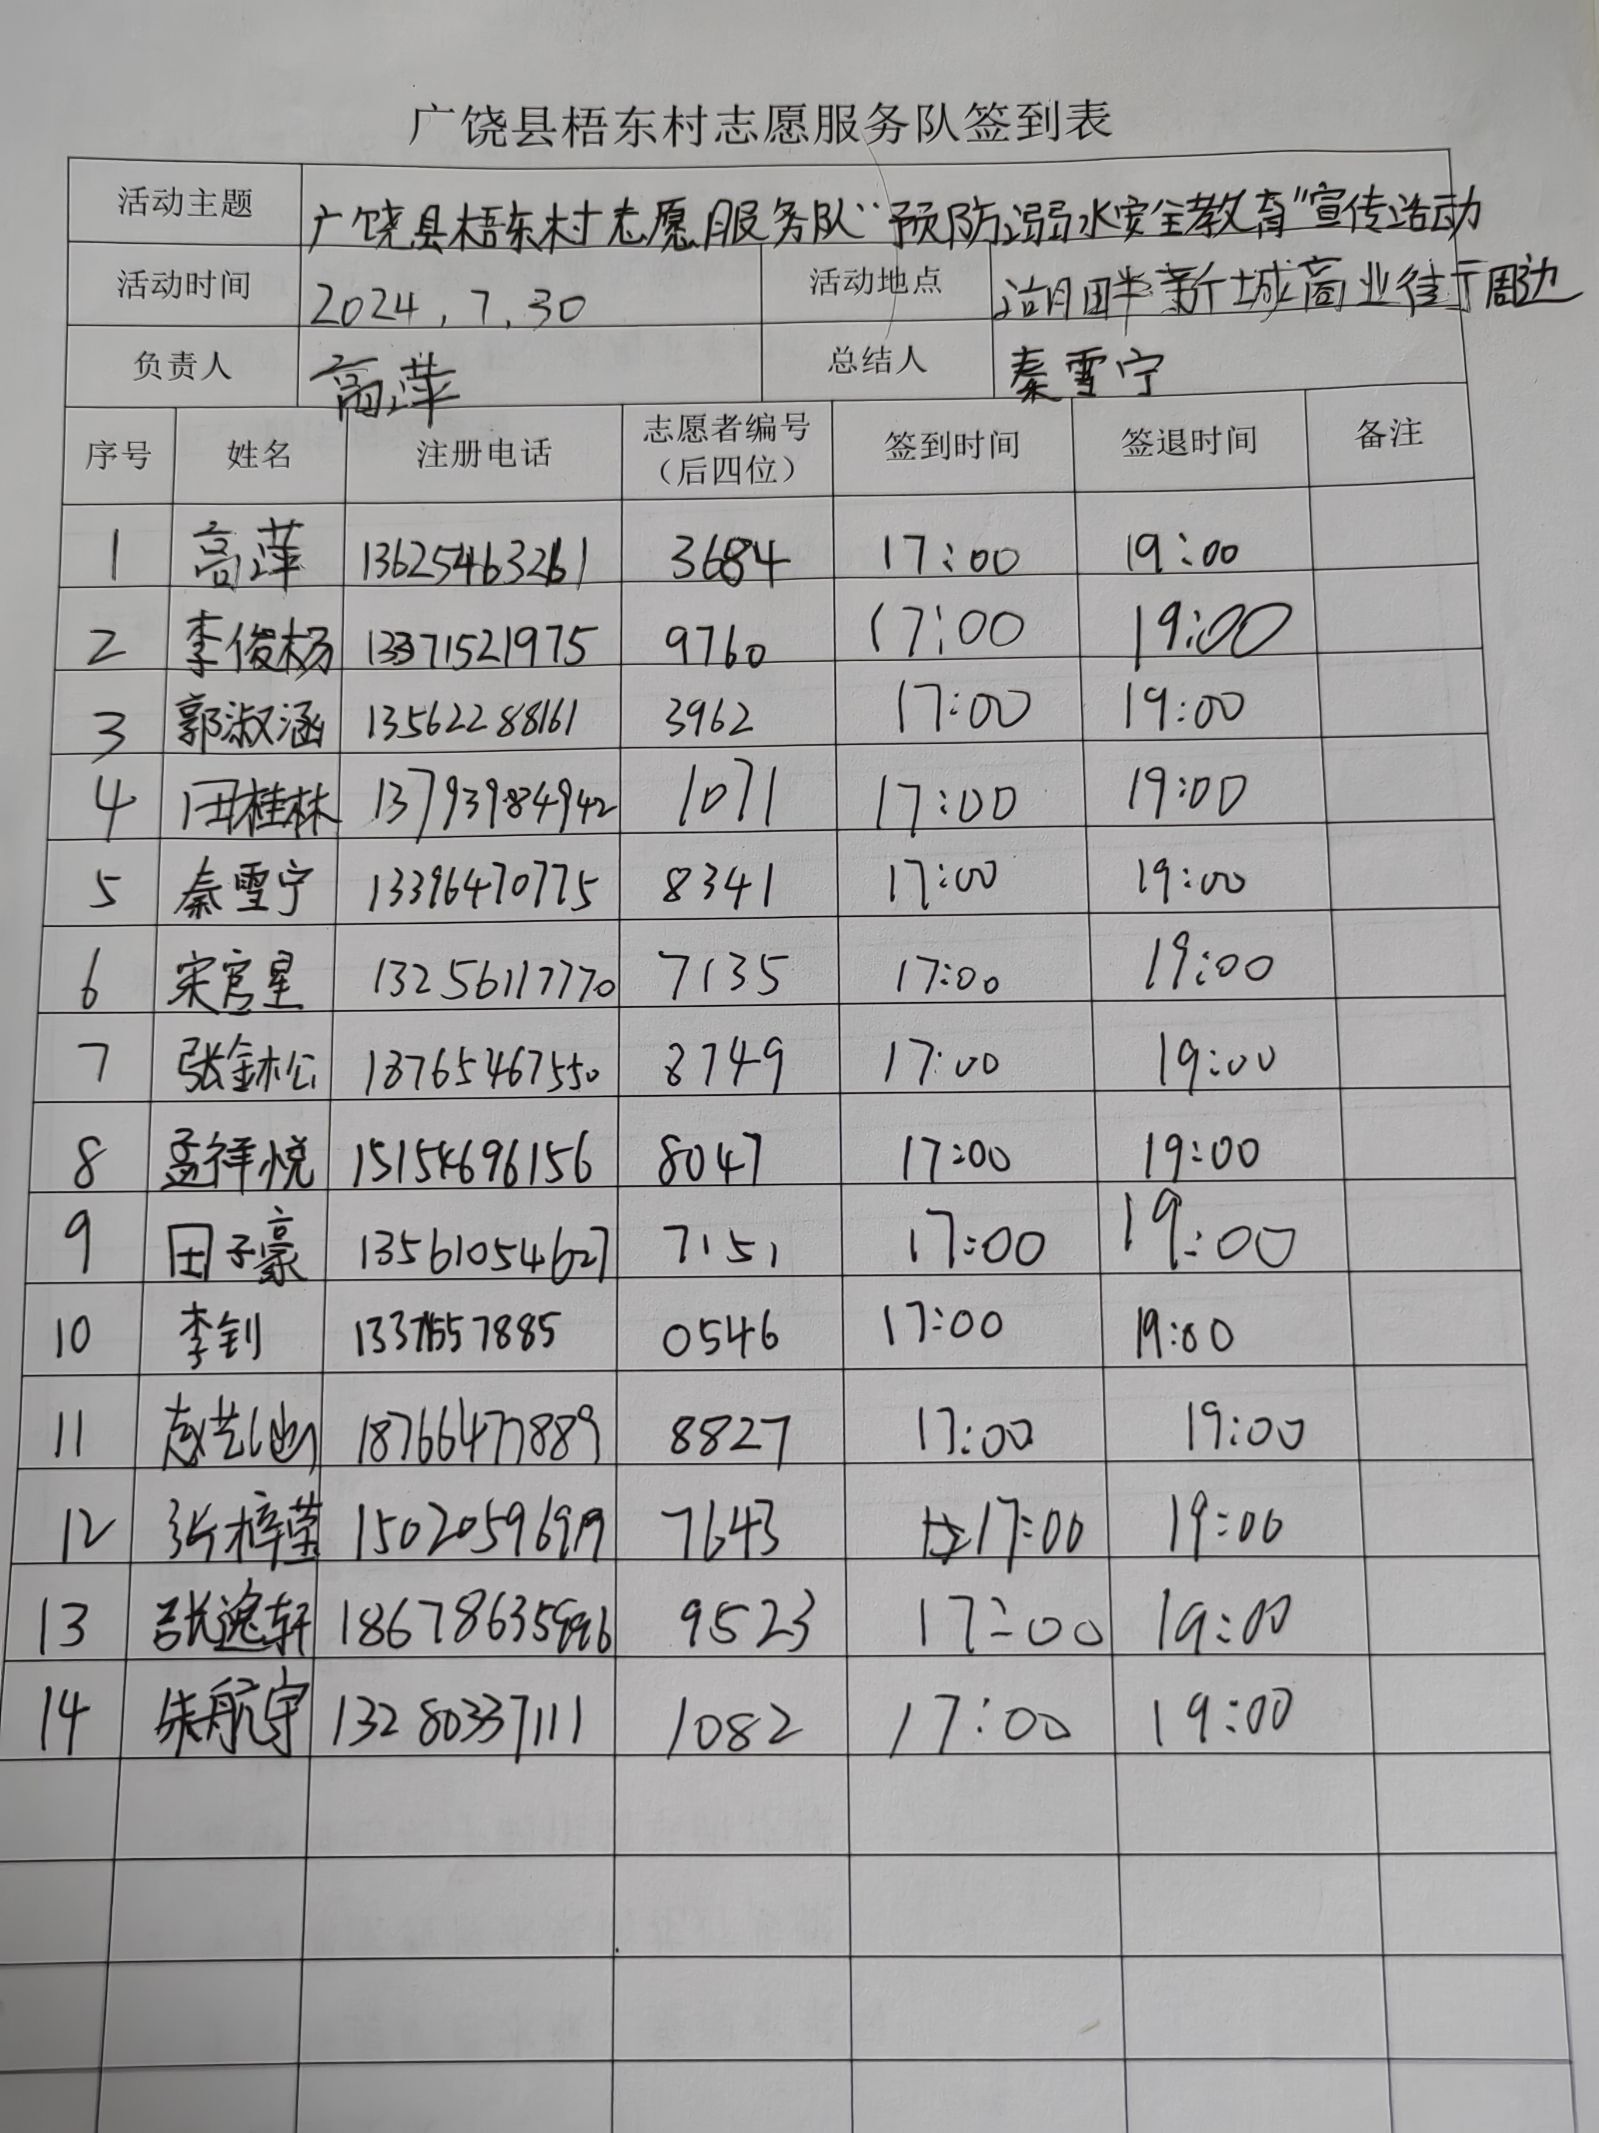 广饶县梧东村志愿服务队签到表
活动主题 广饶县梧东村志愿服务队“预防溺水安全教育”宣传活动
活动时间 2024.7.30 活动地点 湖畔新城商业街行周边
负责人 高萍 总结人 秦雪宁
序号 姓名 注册电话 志愿者编号（后四位） 签到时间 签退时间 备注
1 高萍 13625463261 3684 17:00 19:00
2 李俊杨 13371521975 9760 17:00 19:00
3 郭淑涵 13562288161 3962 17:00 19:00
4 田桂林 13793984942 1071 17:00 19:00
5 秦雪宁 13396470775 8341 17:00 19:00
6 宋官星 13256117770 7135 17:00 19:00
7 张鈢松 18765467550 8749 17:00 19:00
8 孟祥悦 15154696156 8047 17:00 19:00
9 田子豪 13561054627 7151 17:00 19:00
10 李钊 13371557885 0546 17:00 19:00
11 18766477889 8827 17:00 19:00
12 张梓莹 7643 17:00 19:00
13 张逸轩 9523 17:00 19:00
14 朱航宇 13280337111 1082 17:00 19:00